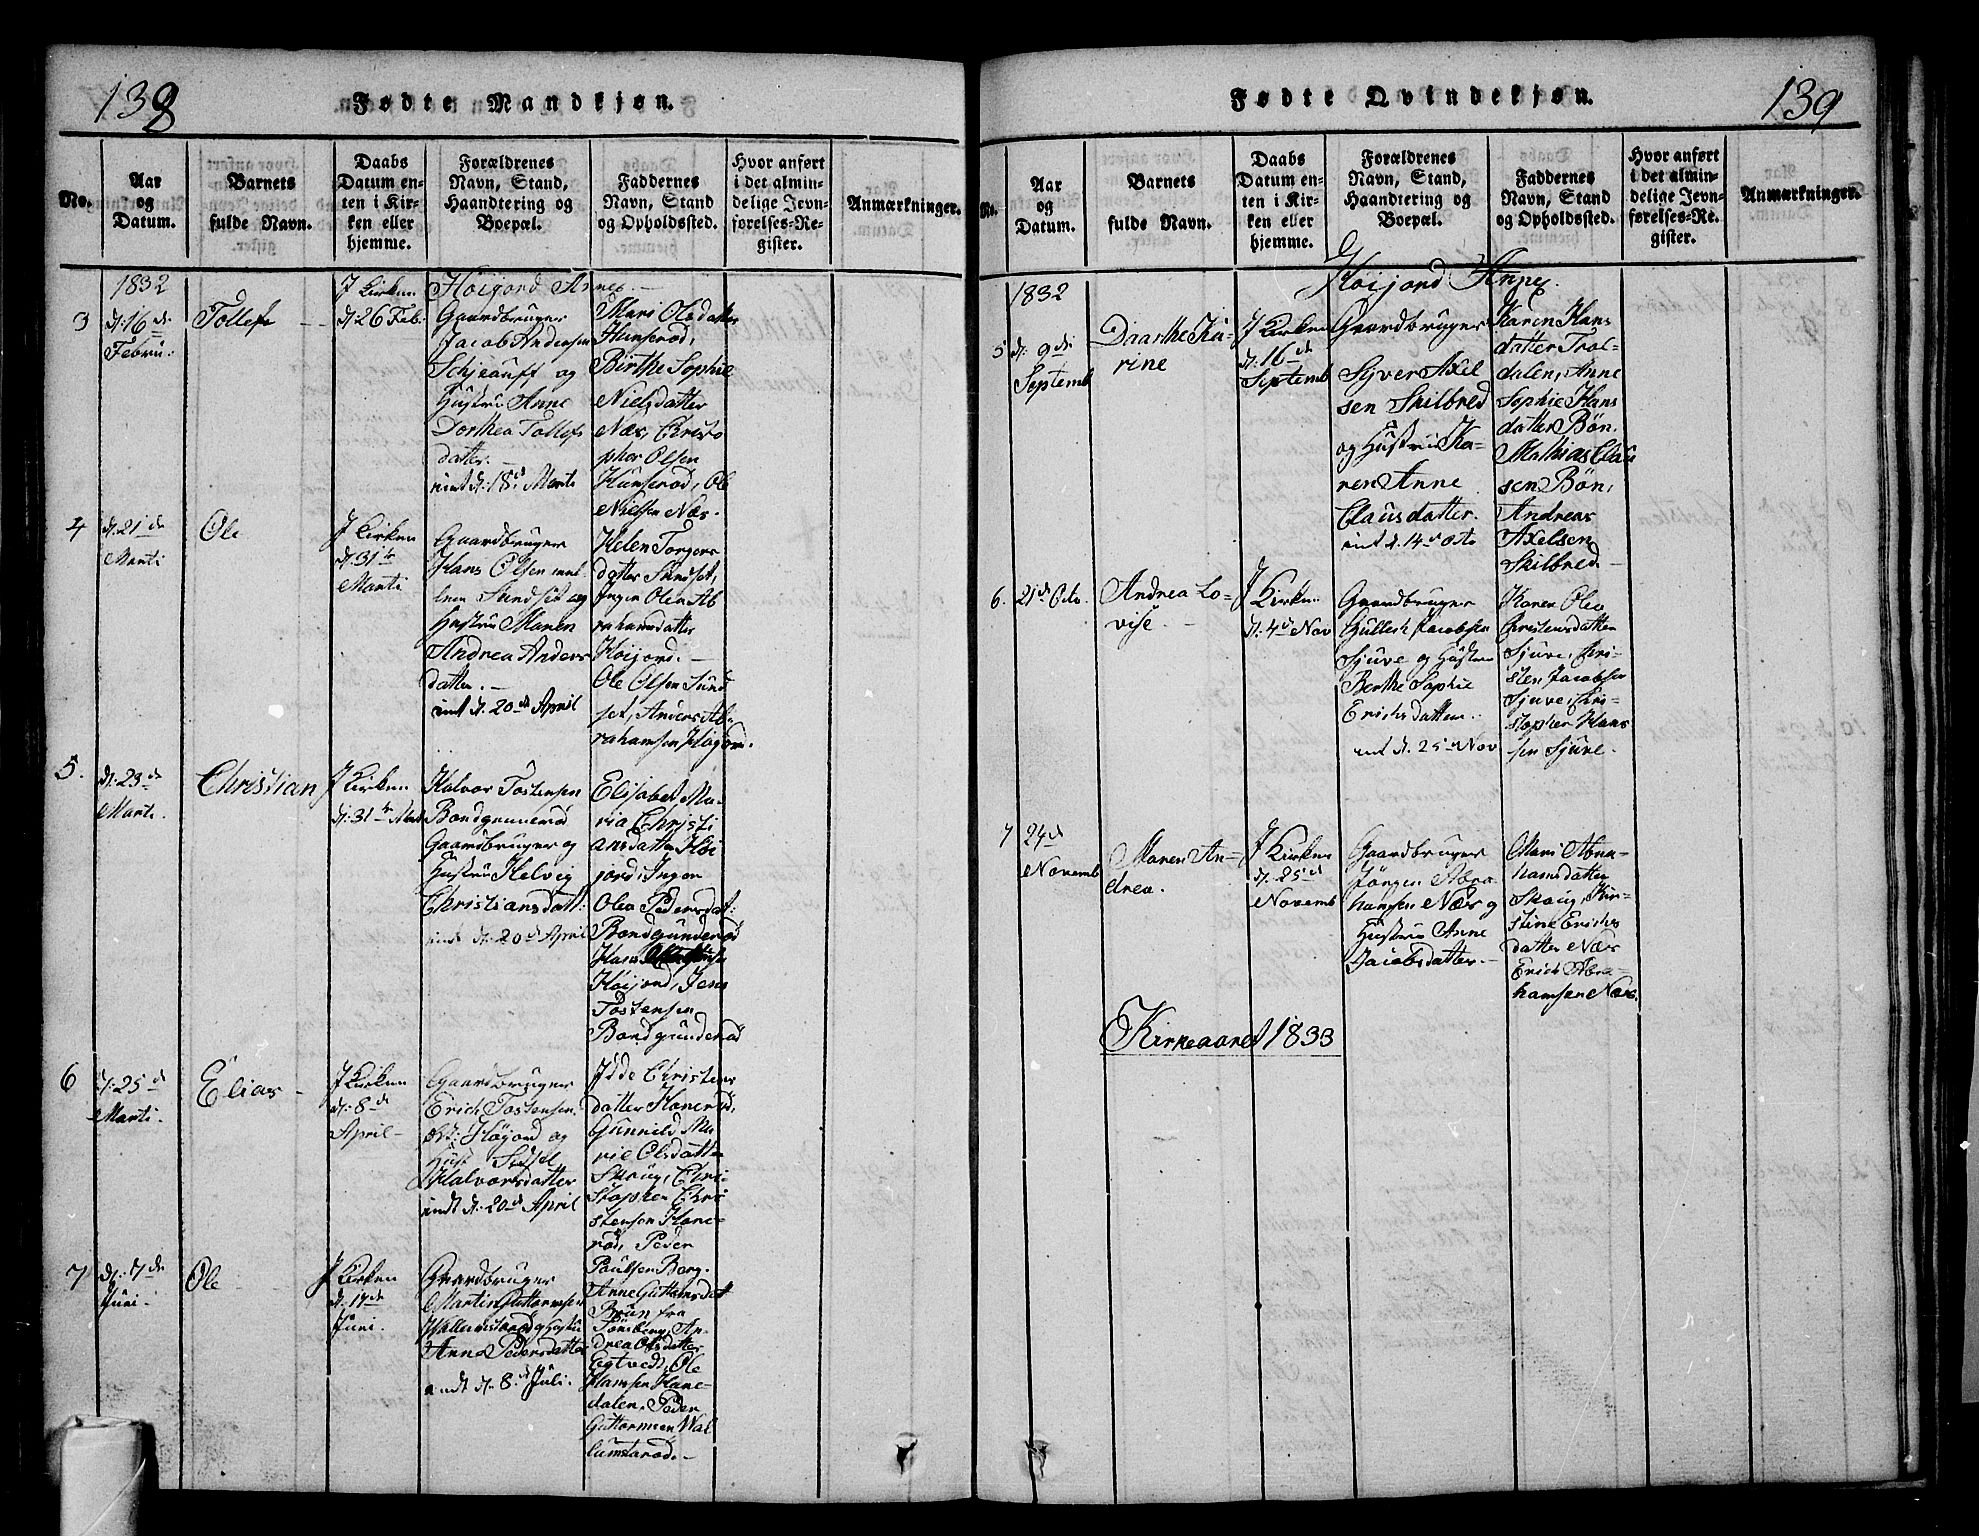 138
Fødte Mandkjøn.
No.
Aar
og
Datum.
Barnets
fulde Navn.
Daabs
Datum en-
ten i Kir-
ken eller
hjemme.
Forældrenes
Navn, Stand,
Haandtering og
Boepæl.
Faddernes
Navn, Stand
og Opholdssted.
Hvor anført
i det almin-
delige Jevn-
førelses-Re-
gister.
Anmærkninger.
1832
Høijord Annex. —
3
d: 16de
Febru:
Tollef
J Kirken
d: 26 Feb:
Gaardbruger
Jacob Andersen
Schjeauff og
Hustru Anne
Dorthea Tollefs
datter. —
int d: 18d Marti
Mari Olsdatter
Hunserød,
Birthe Sophie
Nielsdatter
Næs, Christo
pher Olsen
Hunserød, Ole
Nielsen Næs.
4
d: 21de
Marti
Ole
J Kirken
d: 31te
Marti
Gaardbruger
Hans Olsen mel
lem Sundset og
Hustru Maren
Andrea Anders
datter. —
int d: 20de April
Helen Torgers
datter Sundset,
Inger Olea Ab
rahamsdatter
Høijord. —
Ole Olsen Sund
set, Anders Ab
rahamsen Høgord.
5.
d: 23de
Marti.
Christian
J Kirken
d: 31te Mart
Halvor Tostensen
Bondgunnerød
Gaardbruger og
Hustru Helvig
Christiansdatt:
int d: 20de April
Elisabet Ma-
ria Christi
ansdatter Høi
jord, Inger
Olea Pedersdat:
Bondgunderød
Hans
Høijord, Jens
Tostensen
Bondgunderød
6
d: 25de
Marti.
Elias
J Kirken
d: 8de
April
Gaardbruger
Erich Tostensen
Høgord og
Hust Sidsel
Halvorsdatter
indt d: 20de April
Idde Christens
datter Hanerød,
Gunnild Ma
rie Olsdatter
Skoug, Chri-
stopher Chri
stensen Hane-
rød, Peder
Paulsen Berg.
7
d: 7de
Juni.
Ole
J Kirken
d. 17de
Juni.
Gaardbruger
Martin Guttormsen
Wallumsrød og Hustru
Anne Pedersdatter
indt d: 8de Juli.
Anne Guttormsdat
Bruun fra
Tønsberg, An-
drea Olsdatter
Egtvedt, Ole
Hansen Hane-
dalen, Peder
Guttormsen Wal
lumsrød. —
139
Fødte Qvindekjøn.
No.
Aar
og
Datum.
Barnets
fulde Navn.
Daabs
Datum en-
ten i Kir-
ken eller
hjemme.
Forældrenes
Navn, Stand,
Haandtering og
Boepæl.
Faddernes
Navn, Stand
og Opholdssted.
Hvor anført
i det almin-
delige Jevn-
førelses-Re-
gister.
Anmærkninger.
1832
Høijord Annex.
5
d: 9de
Septemb
Daarthe Ka-
rine
J Kirken
d: 16de
Septemb
Gaardbruger
Syver Axel
sen Skilbred
og Hustru Ka-
ren Anne
Clausdatter.
int d. 14de Octo
Karen Hans
datter Trol-
dalen, Anne
Sophie Hans
datter Bøn.
Mathias Clau
sen Bøn,
Andreas
Axelsen
Skilbred. —
6.
21de Octo.
Andrea Lo-
vise. —
J Kirken
d: 4de Nov
Gaardbruger
Gullich Jacobsen
Sjuve og Hustru
Berthe Sophie
Erichsdatter.
int d. 25de Nov
Karen Olea
Christensdatter
Sjuve, Chri-
sten Jacobsen
Sjuve, Chri-
stopher Hans
sen Sjuve.
7
24de
Novemb
Maren An-
drea.
J Kirken
d. 25de
Novemb
Gaardbruger
Jørgen Abra
hamsen Næs og
Hustru Anne
Jacobsdatter. —
Mari Abra-
hamsdatter
Skoug, Kir-
stine Erichs
datter Næs
Erich Abra-
hamsen Næs.
Kirkeaaret 1833